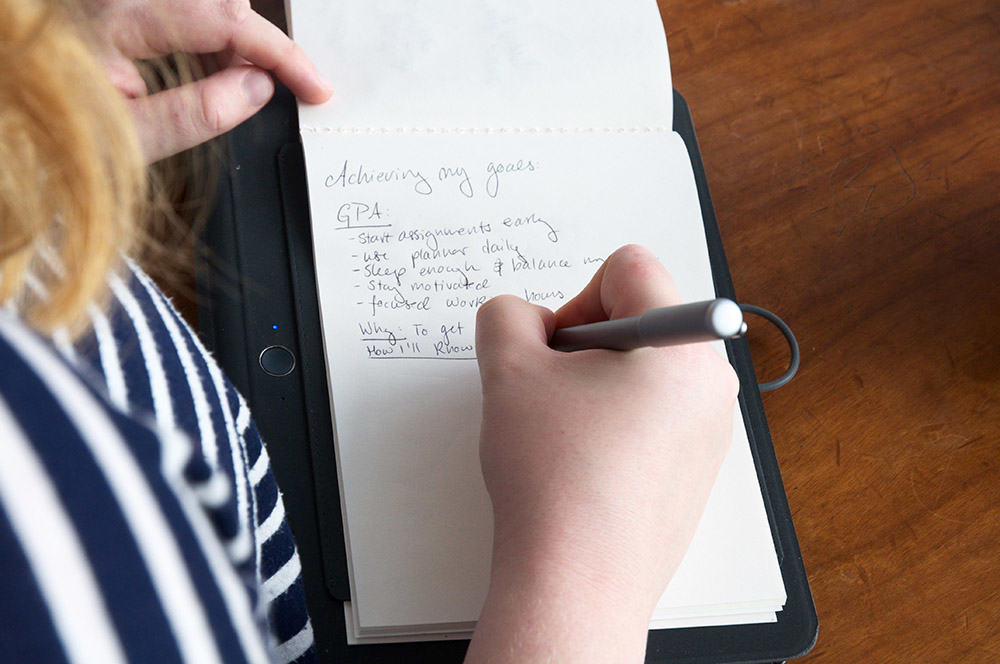 Achieving my goals:
GPA:
- Start assignments early
- use planner daily
- Sleep enough & balance
- Stay motivated
- focused work hours
Why: To get
How I'll Know